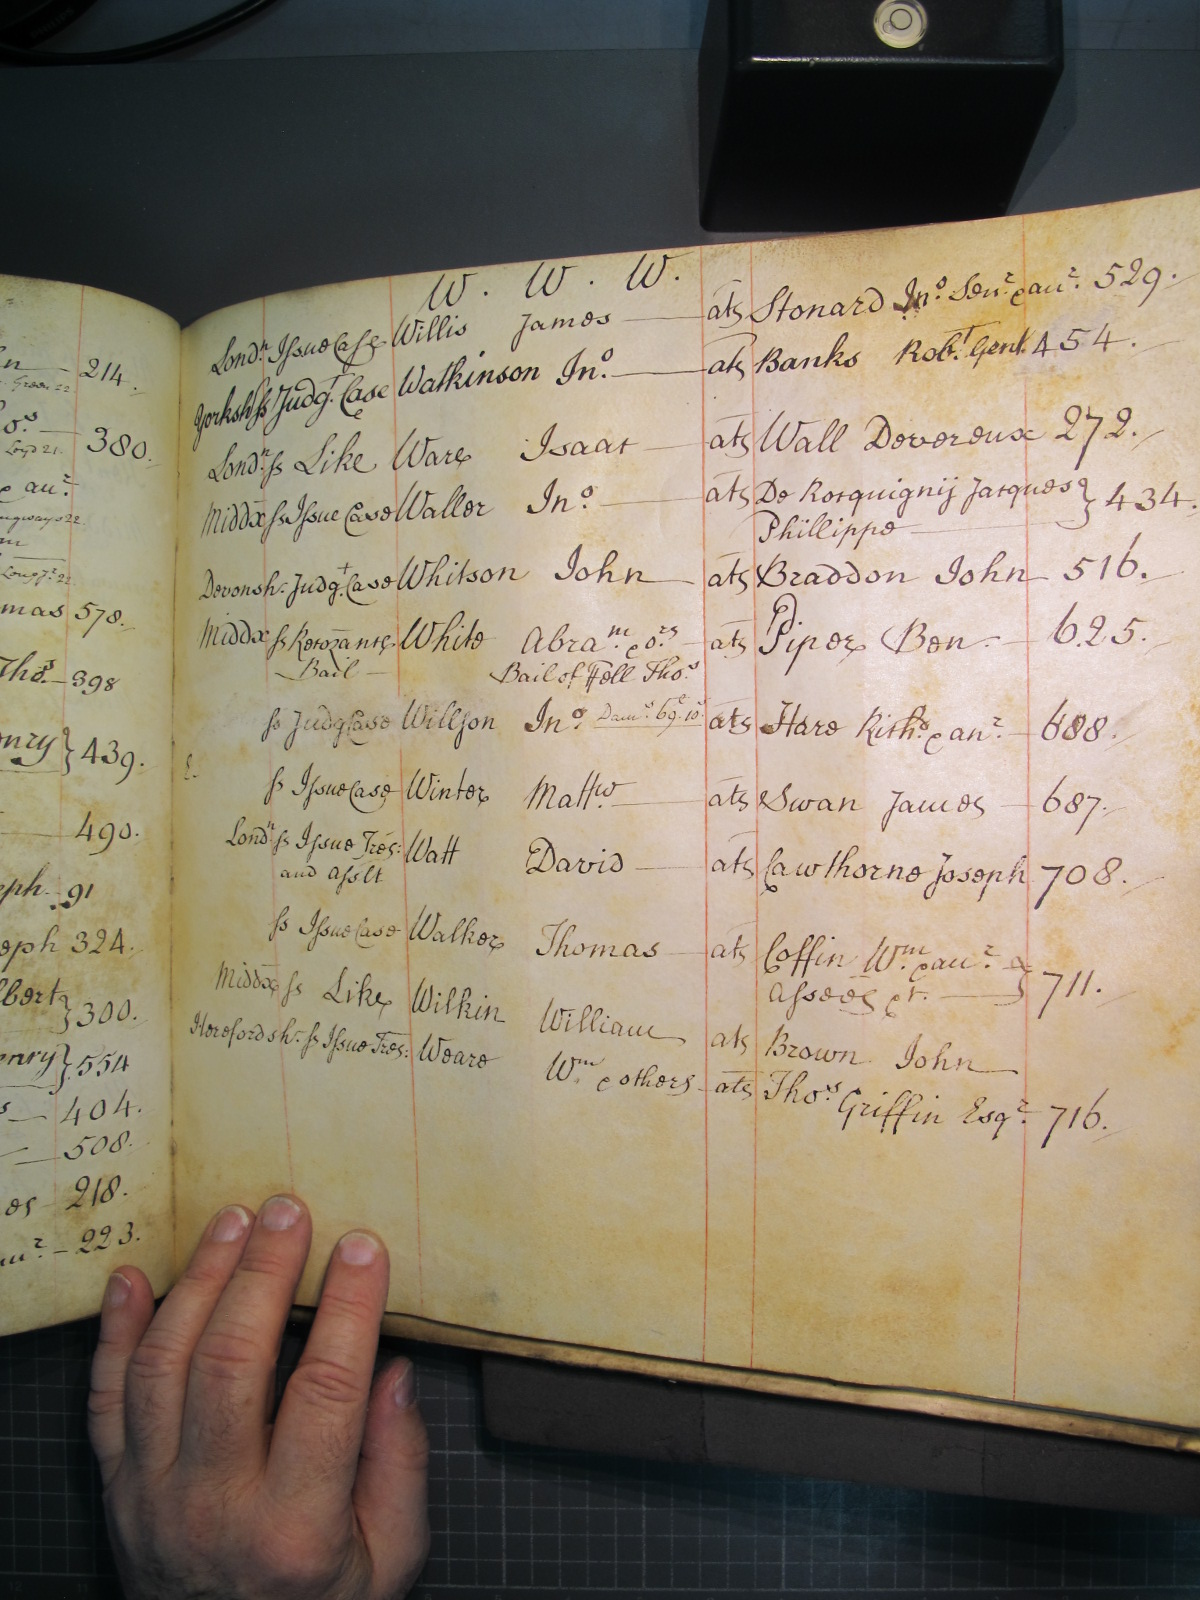 214.
380.
Loyd 21.
& an.r
22.
mas 578.
Tho.s — 398
enry } 439.
490.
eph. 91
eph 324.
lbert } 300.
enry } 554
s — 404.
508.
es 218.
au.r — 223.
W. W. W.
Lond.n Issue Case Willis James — ats Stonard Jn.o Sen.r & au.r 529.
Yorksh ss Judg.t Case Watkinson Jn.o — ats Banks Rob.t Gent. 454.
Lond.n ss Like Ware Isaac — ats Wall Devereux 272.
Middx ss Issue Case Waller Jn.o — ats De Rosquignij Jacques } 434.
Phillippe —
Devonsh.r Judg.t Case Whitson John — ats Braddon John — 516.
Middx ss Recozante White Abra.m & o.rs — ats Piper Ben. — 625.
Bail — Bail of Fell Tho.s
ss Judg Case Willson Jn.o Dam.s 69.10.s ats Hare Rich.d & an.r — 688.
ss Issue Case Winter Matt.w — ats Swan James — 687.
Lond.n ss Issue Tres: Watt David — ats Cawthorne Joseph 708.
and asslt
ss Issue Case Walker Thomas — ats Coffin W.m & au.r } 711.
Assees &c. —
Middx ss Like Wilkin William ats Brown John —
Herefordsh.r ss Issue Tres: Weare W.m & others — ats Tho.s Griffin Esq.r — 716.